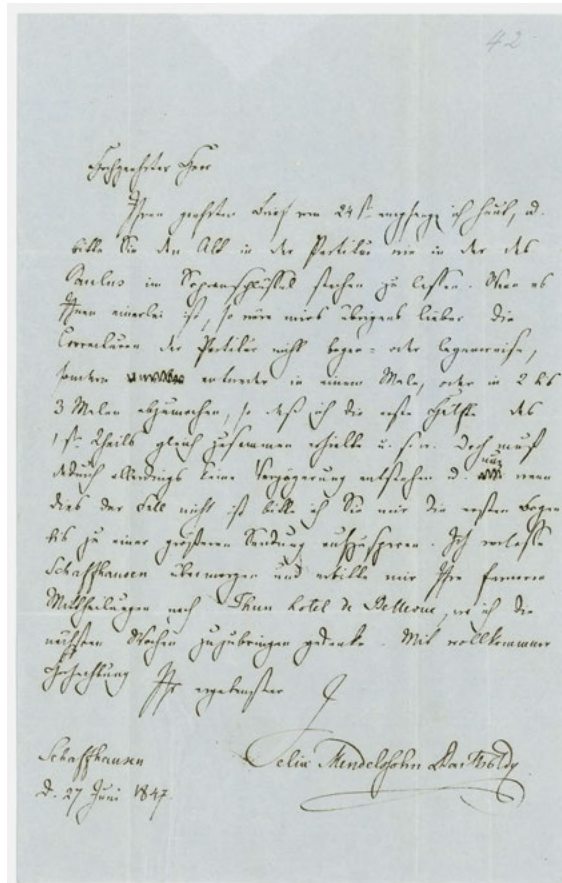 42
Hochgeehrter Herr
Ihren geehrten Brief vom 24st. empfange ich heut, u.
bitte Sie den Alt in der Partitur wie in der des
Paulus im Sopranschlüssel stechen zu lassen. Wenn es
Ihnen einerlei ist, so wäre mirs übrigens lieber die
Correcturen der Partitur nicht bogen- oder lagenweise,
sondern entweder in einem Male, oder in 2 bis
3 Malen abzumachen, so daß ich die erste Hälfte des
1st. Theils gleich zusammen erhielte u.s.w. Doch muß
dadurch allerdings keine Verzögerung entstehen u. nur wenn
dies der Fall nicht ist bitte ich Sie mir die ersten Bogen
bis zu einer größeren Sendung aufzusparen. Ich verlasse
Schaffhausen übermorgen und erbitte mir Ihre ferneren
Mittheilungen nach Thun hotel de Bellevue, wo ich die
nächsten Wochen zuzubringen gedenke. Mit vollkommner
Hochachtung Ihr ergebenster
Felix Mendelssohn Bartholdy
Schaffhausen
d. 27 Juni 1847.